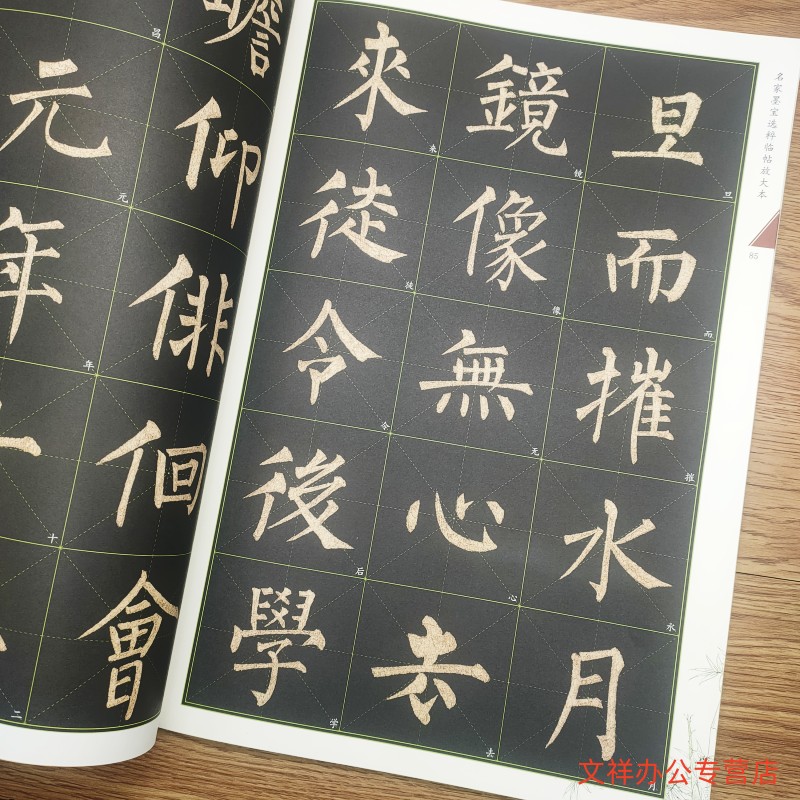 名家墨宝选粹临帖放大本
85
旦而摧水月
旦
而
摧
水
月
鏡像無心去
镜
像
无
心
去
來徒令後學
来
徒
令
后
学
仰俳佪會
元年
昌
元
年
十
二
文祥办公专营店